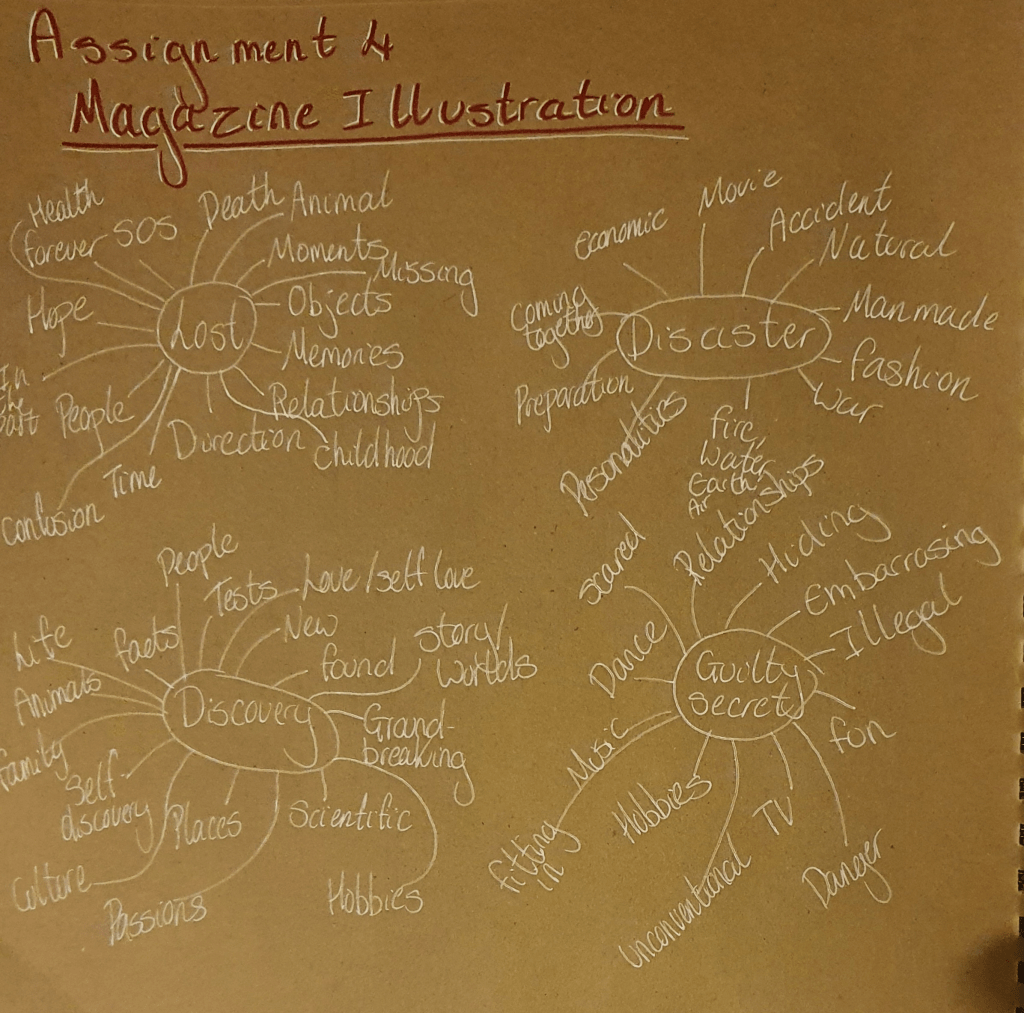 Assignment 4
Magazine Illustration
Lost
Health
forever
SOS
Death
Animal
Moments
Missing
Objects
Memories
Relationships
childhood
Direction
Time
Confusion
People
In
the
past
Hope
Disaster
economic
Movie
Accident
Natural
Manmade
fashion
War
fire,
Water
Earth
Air
Personalities
Preparation
Coming
together
Discovery
Life
facts
People
Tests
Love/self love
New
found
story/
worlds
Grand-
breaking
Hobbies
Scientific
Passions
Places
Culture
Self-
discovery
family
Animals
Guilty
secret
scared
Relationships
Hiding
Embarrasing
Illegal
fun
Danger
TV
unconventional
Hobbies
fitting
in
Music
Dance